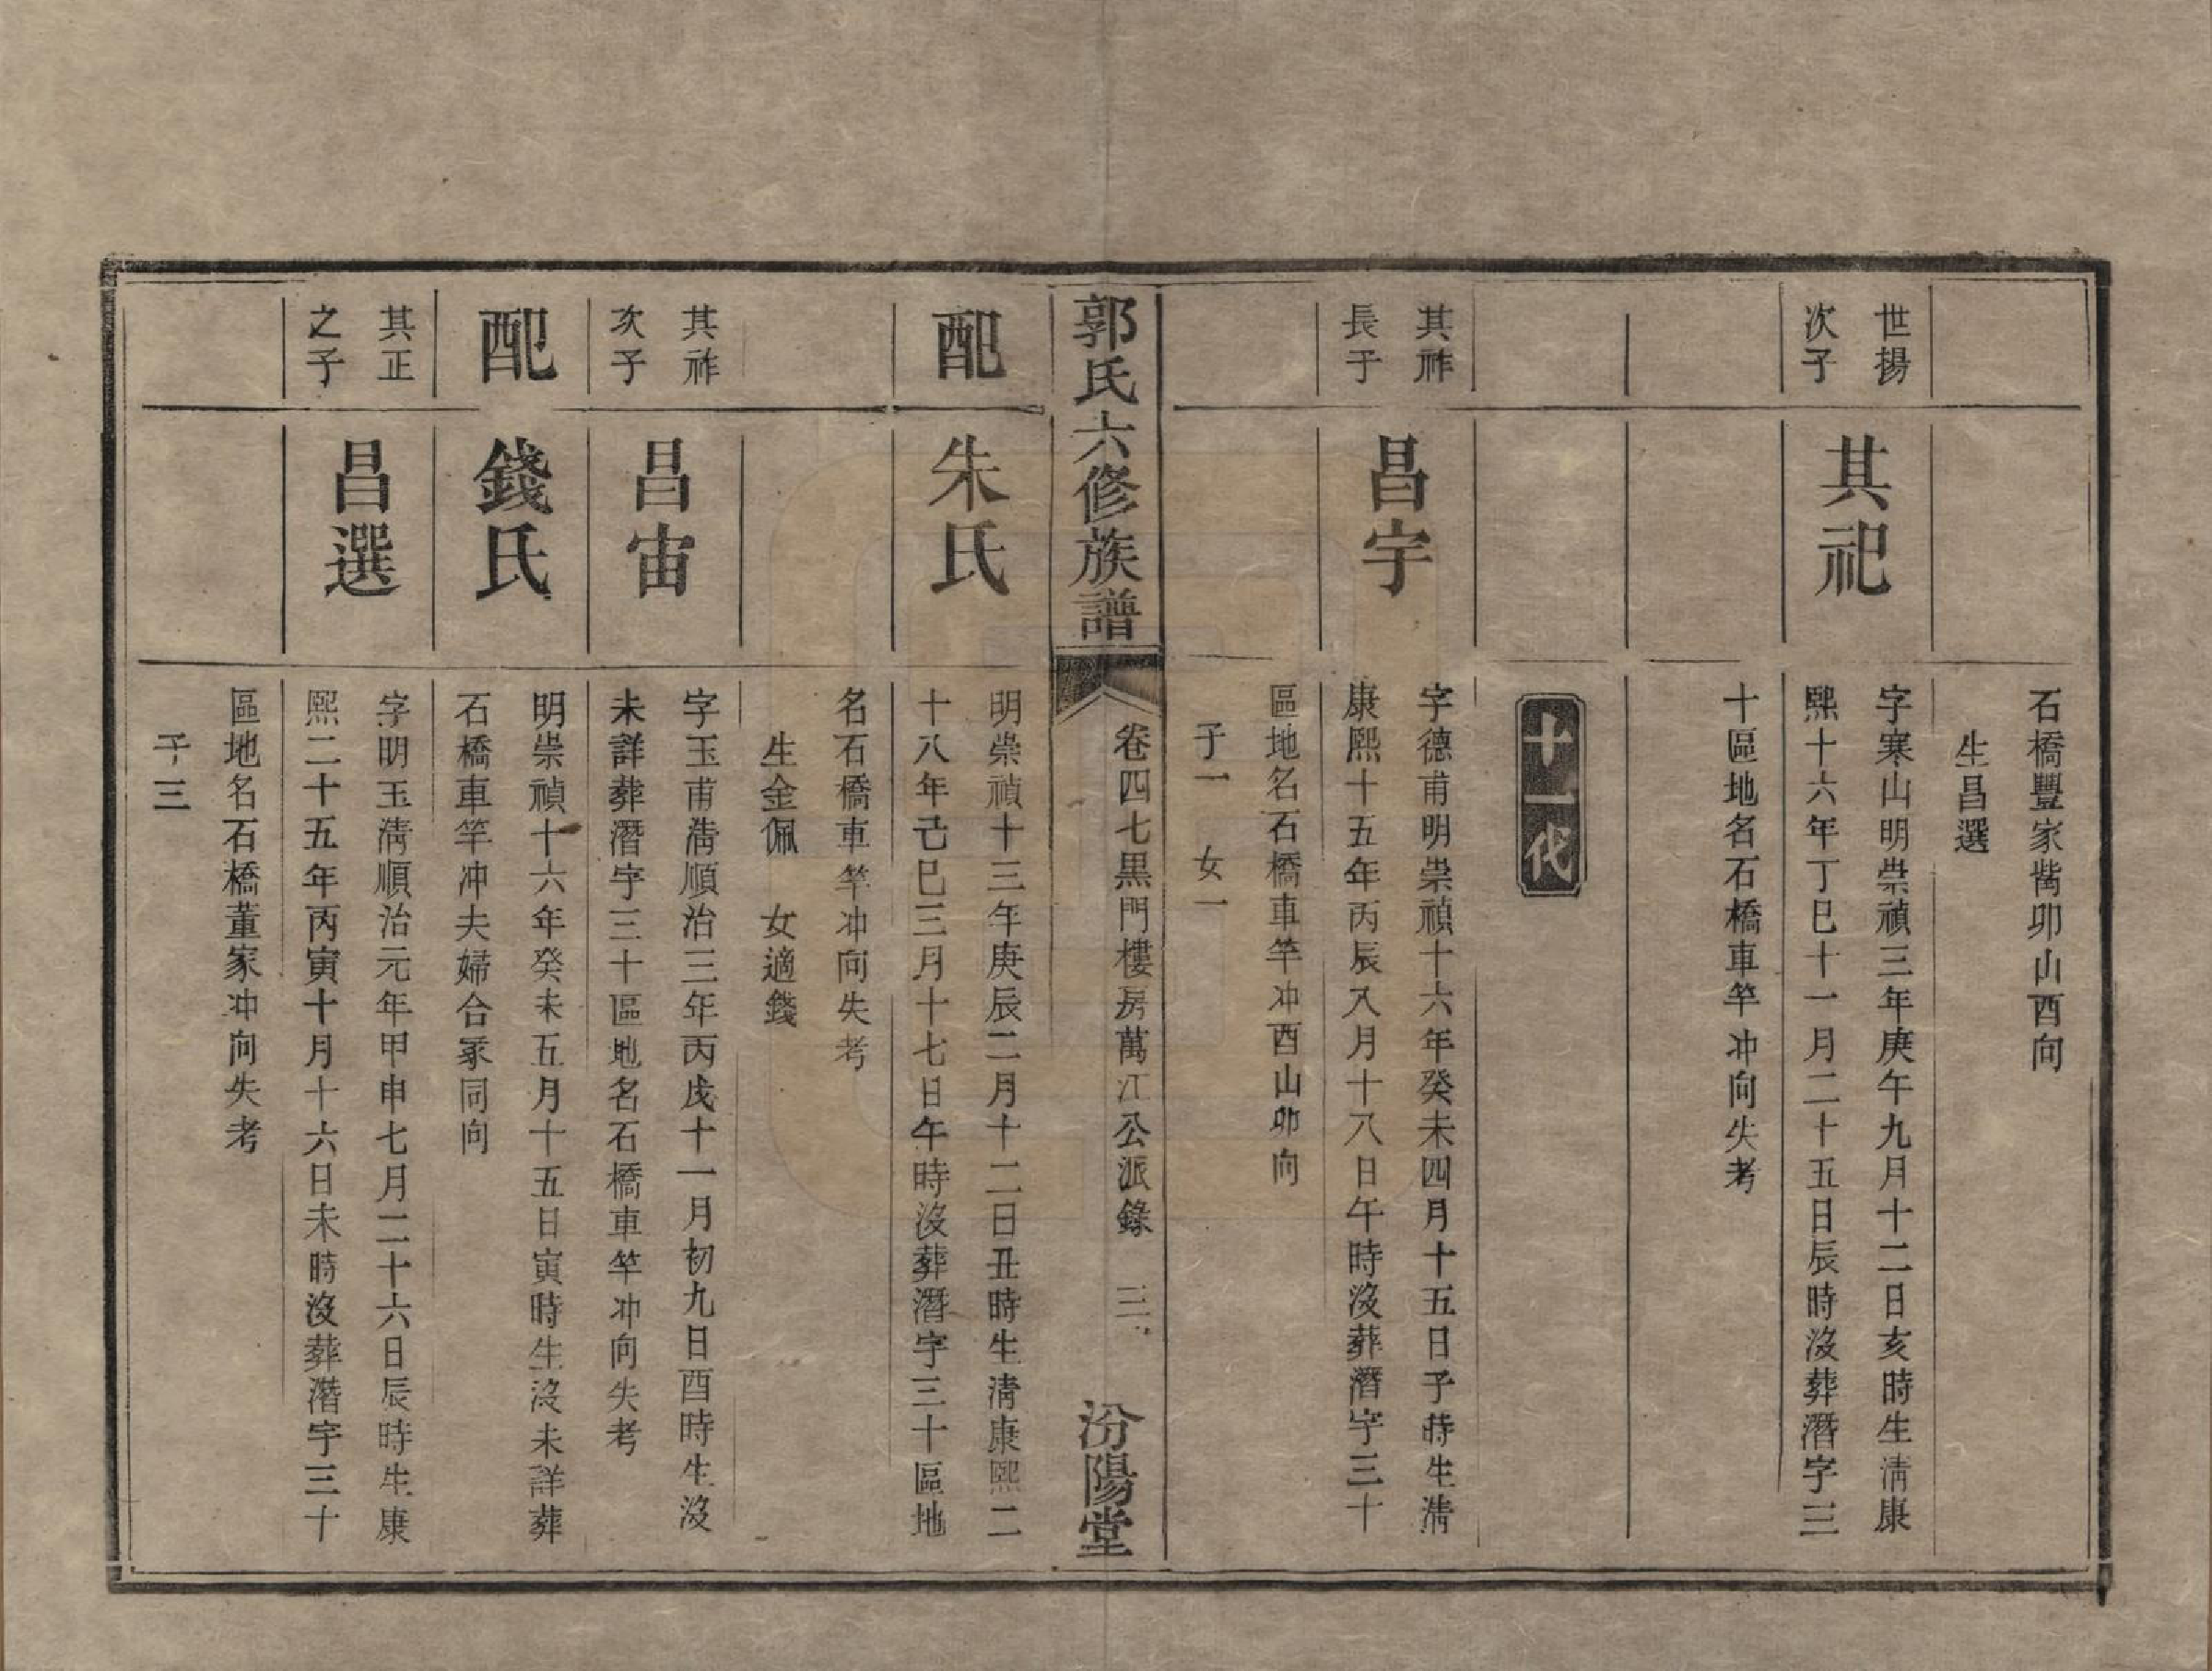 石橋豐家觜卯山酉向
生昌選
世揚
次子
其祀
字寒山明崇禎三年庚午九月十二日亥時生淸康
熙十六年丁巳十一月二十五日辰時沒葬潛字三
十區地名石橋車竿冲向失考
十一代
其祚
長子
昌宇
字德甫明崇禎十六年癸未四月十五日子時生淸
康熙十五年丙辰八月十八日午時沒葬潛字三十
區地名石橋車竿冲酉山卯向
子一 女一
郭氏六修族譜
卷四七黒門樓房萬江公派錄 三
汾陽堂
配
朱氏
明崇禎十三年庚辰二月十二日丑時生淸康熙二
十八年己巳三月十七日午時沒葬潛字三十區地
名石橋車竿冲向失考
生金佩 女適錢
其祚
次子
昌宙
字玉甫淸順治三年丙戌十一月初九日酉時生沒
未詳葬潛字三十區地名石橋車竿冲向失考
配
錢氏
明崇禎十六年癸未五月十五日寅時生沒未詳葬
石橋車竿冲夫婦合冢同向
其正
之子
昌選
字明玉淸順治元年甲申七月二十六日辰時生康
熙二十五年丙寅十月十六日未時沒葬潛字三十
區地名石橋董家冲向失考
子三